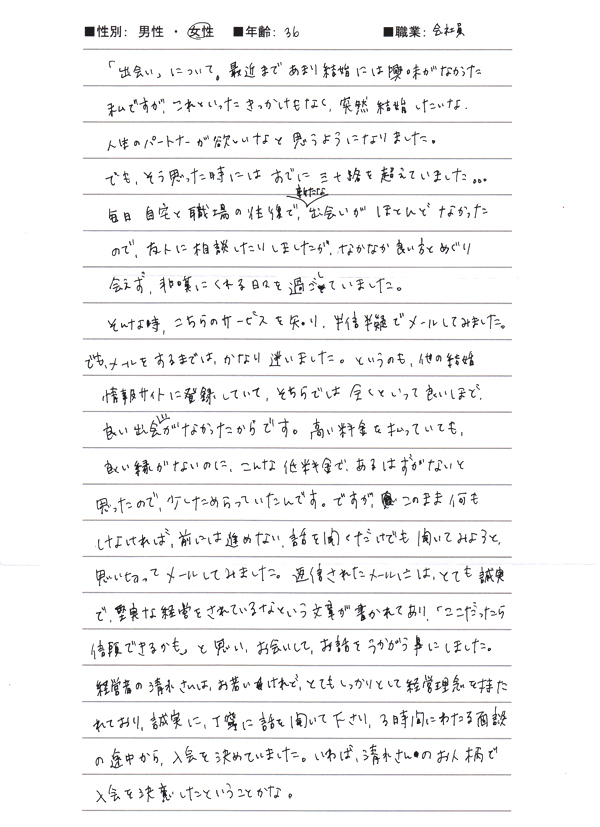 ■性別: 男性 ・ 女性　■年齢: 36　■職業: 会社員
「出会い」について。最近まであまり結婚には興味がなかった
私ですが、これといったきっかけもなく、突然結婚したいな、
人生のパートナーが欲しいなと思うようになりました。
でも、そう思った時にはすでに三十路を超えていました…
毎日自宅と職場の往復で、新たな出会いがほとんどなかった
ので、友人に相談したりしましたが、なかなか良い方とめぐり
会えず、悲嘆にくれる日々を過ごしていました。
そんな時、こちらのサービスを知り、半信半疑でメールしてみました。
でも、メールをするまでは、かなり迷いました。というのも、他の結婚
情報サイトに登録していて、そちらでは全くといって良いほど、
良い出会いがなかったからです。高い料金を払っていても、
良い縁がないのに、こんな低料金で、あるはずがないと
思ったので、少しためらっていたんです。ですが、このまま何も
しなければ、前には進めない、話を聞くだけでも聞いてみようと、
思い切ってメールしてみました。返信されたメールには、とても誠実
で、堅実な経営をされているなという文章が書かれてあり、「ここだったら
信頼できるかも」と思い、お会いして、お話をうかがう事にしました。
経営者の清水さんは、お若いけれど、とてもしっかりとして経営理念を持た
れており、誠実に、丁寧に話を聞いて下さり、3時間にわたる面談
の途中から、入会を決めていました。いわば、清水さんのお人柄で
入会を決意したということかな。